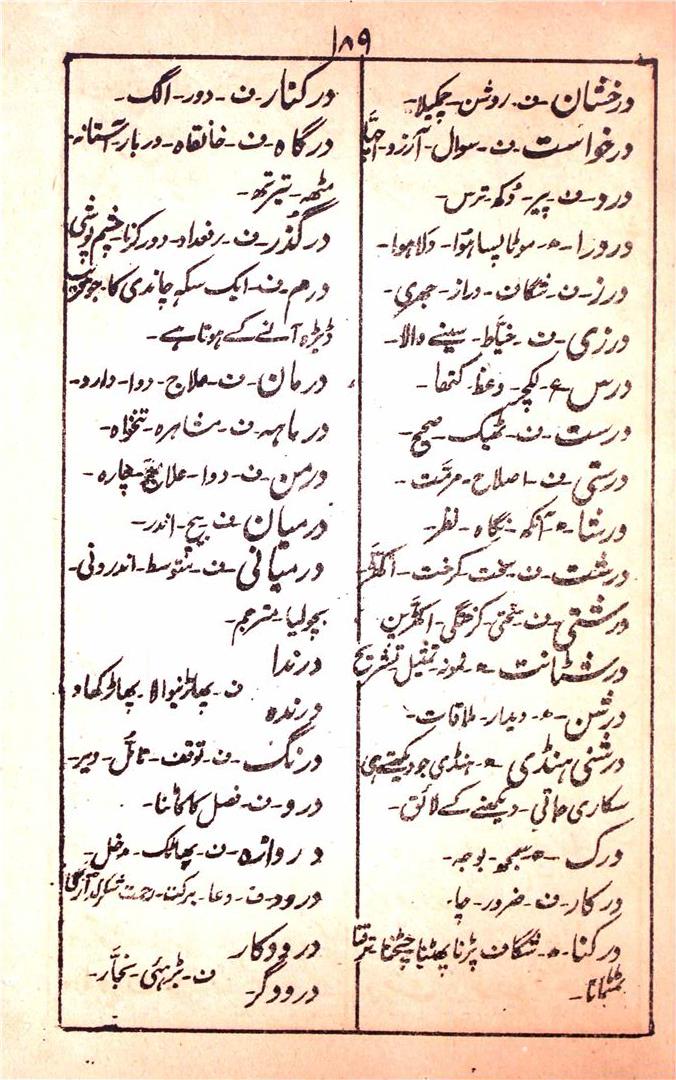 ۱۸۹
درخشان - ف - روشن - چمکیلا -
درخواست - ف - سوال - آرزو -
درد - ف - پیر - دُکھ - ترس -
دردرا - ہ - موٹا پسا ہوا - دَلا ہوا -
درز - ف - شگاف - دراز - جھری -
درزی - ف - خیّاط - سینے والا -
درس - ع - لکچر - وعظ - کتھا -
درست - ف - ٹھیک - صحیح -
درستی - ف - اصلاح - مرمّت -
درشا - ہ - آنکھ - نگاہ - نظر -
درشت - ف - سخت - کرخت -
درشتی - ف - سختی - کرختگی - اکھڑپن
درشٹانت - ہ - نمونہ - تمثیل - تشریح
درشن - ہ - دیدار - ملاقات -
درشنی ہنڈی - ہ - ہنڈی جو دیکھتے ہی
سکاری جاتی - دیکھنے کے لائق -
درک - ہ - سمجھ - بوجھ -
درکار - ف - ضرور - چا -
درکنا - ہ - شگاف پڑنا پھٹنا چٹخنا ترقنا
درکنار - ف - دور - الگ -
درگاہ - ف - خانقاہ - دربار - آستانہ -
مٹھ - تیرتھ -
درگُذر - ف - دور کرنا - چشم پوشی
درم - ف - ایک سکہ چاندی کا - جو قریب
ڈیڑہ آنے کے ہوتا ہے -
درمان - ف - علاج - دوا - دارو -
درماہہ - ف - مشاہرہ - تنخواہ -
درمن - ف - دوا - علاج - چارہ -
درمیان - ف - بیچ - اندر -
درمیانی - ف - متوسط - اندرونی -
بچولیا - مترجم -
درندا
درندہ ف - پھاڑنیوالا - پھاڑ کھاو
درنگ - ف - توقف - تامّل - دیر -
درو - ف - فصل کا کاٹنا -
دروازہ - ف - پھاٹک - مدخل -
درود - ف - دعا - برکت - رحمت
درودکار
درودگر - ف - بڑھئی - نجّار -